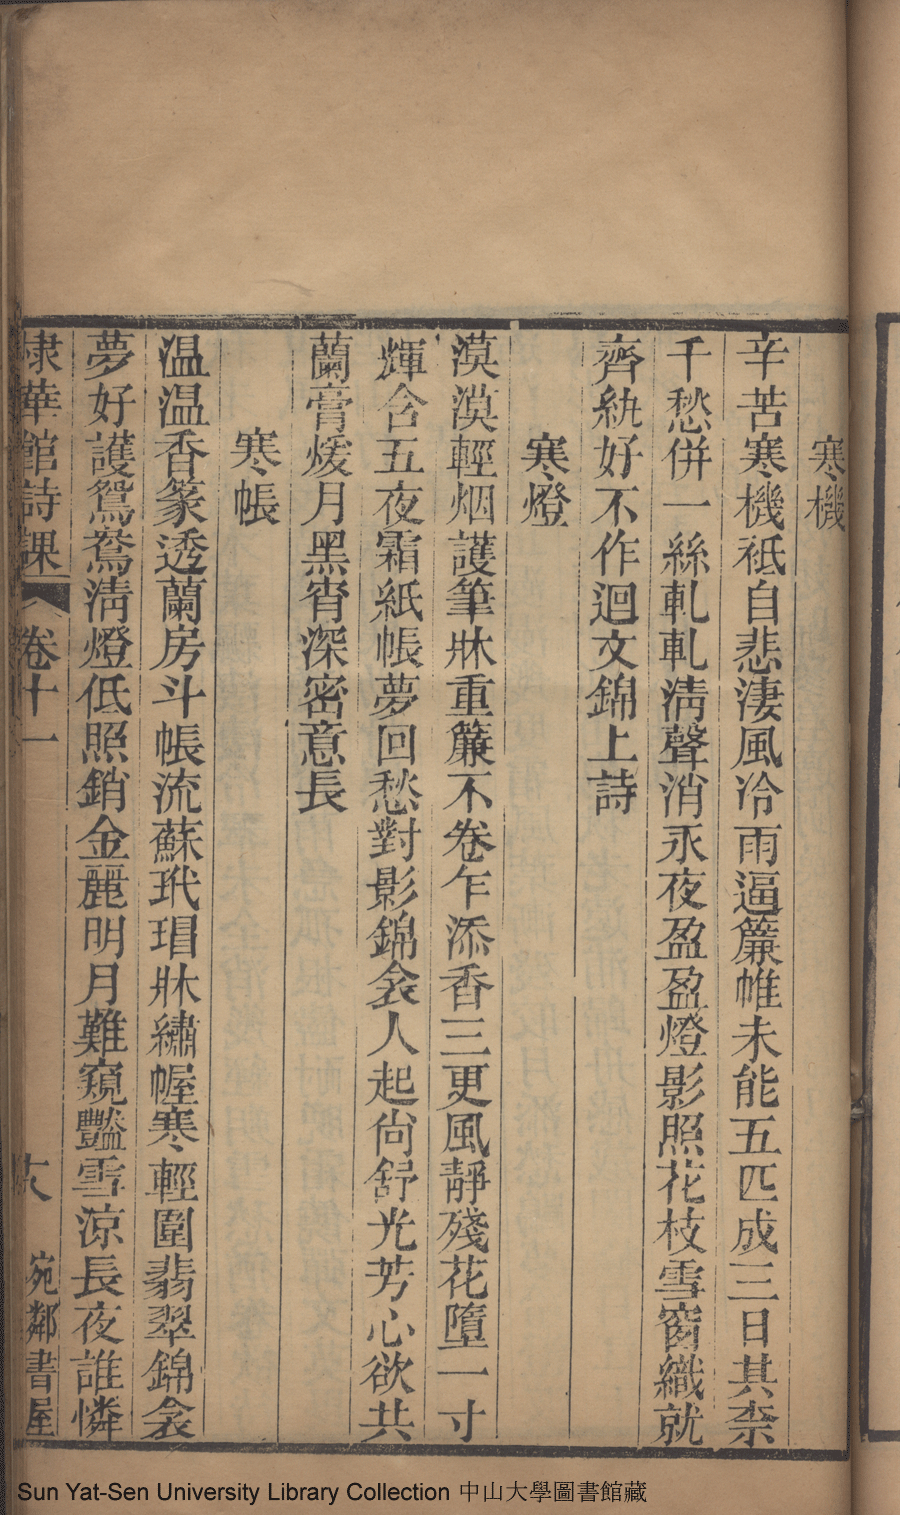 寒機
辛苦寒機祇自悲淒風冷雨逼簾帷未能五匹成三日其柰
千愁併一絲軋軋淸聲消永夜盈盈燈影照花枝雪窗織就
齊紈好不作迴文錦上詩
寒燈
漠漠輕烟護筆牀重簾不卷乍添香三更風靜殘花墮一寸
輝含五夜霜紙帳夢回愁對影錦衾人起尙舒光芳心欲共
蘭膏煖月黑宵深密意長
寒帳
温温香篆透蘭房斗帳流蘇玳瑁牀繡幄寒輕圍翡翠錦衾
夢好護鴛鴦淸燈低照銷金麗明月難窺豔雪涼長夜誰憐
棣華館詩課 卷十一 宛鄰書屋
Sun Yat-Sen University Library Collection 中山大學圖書館藏